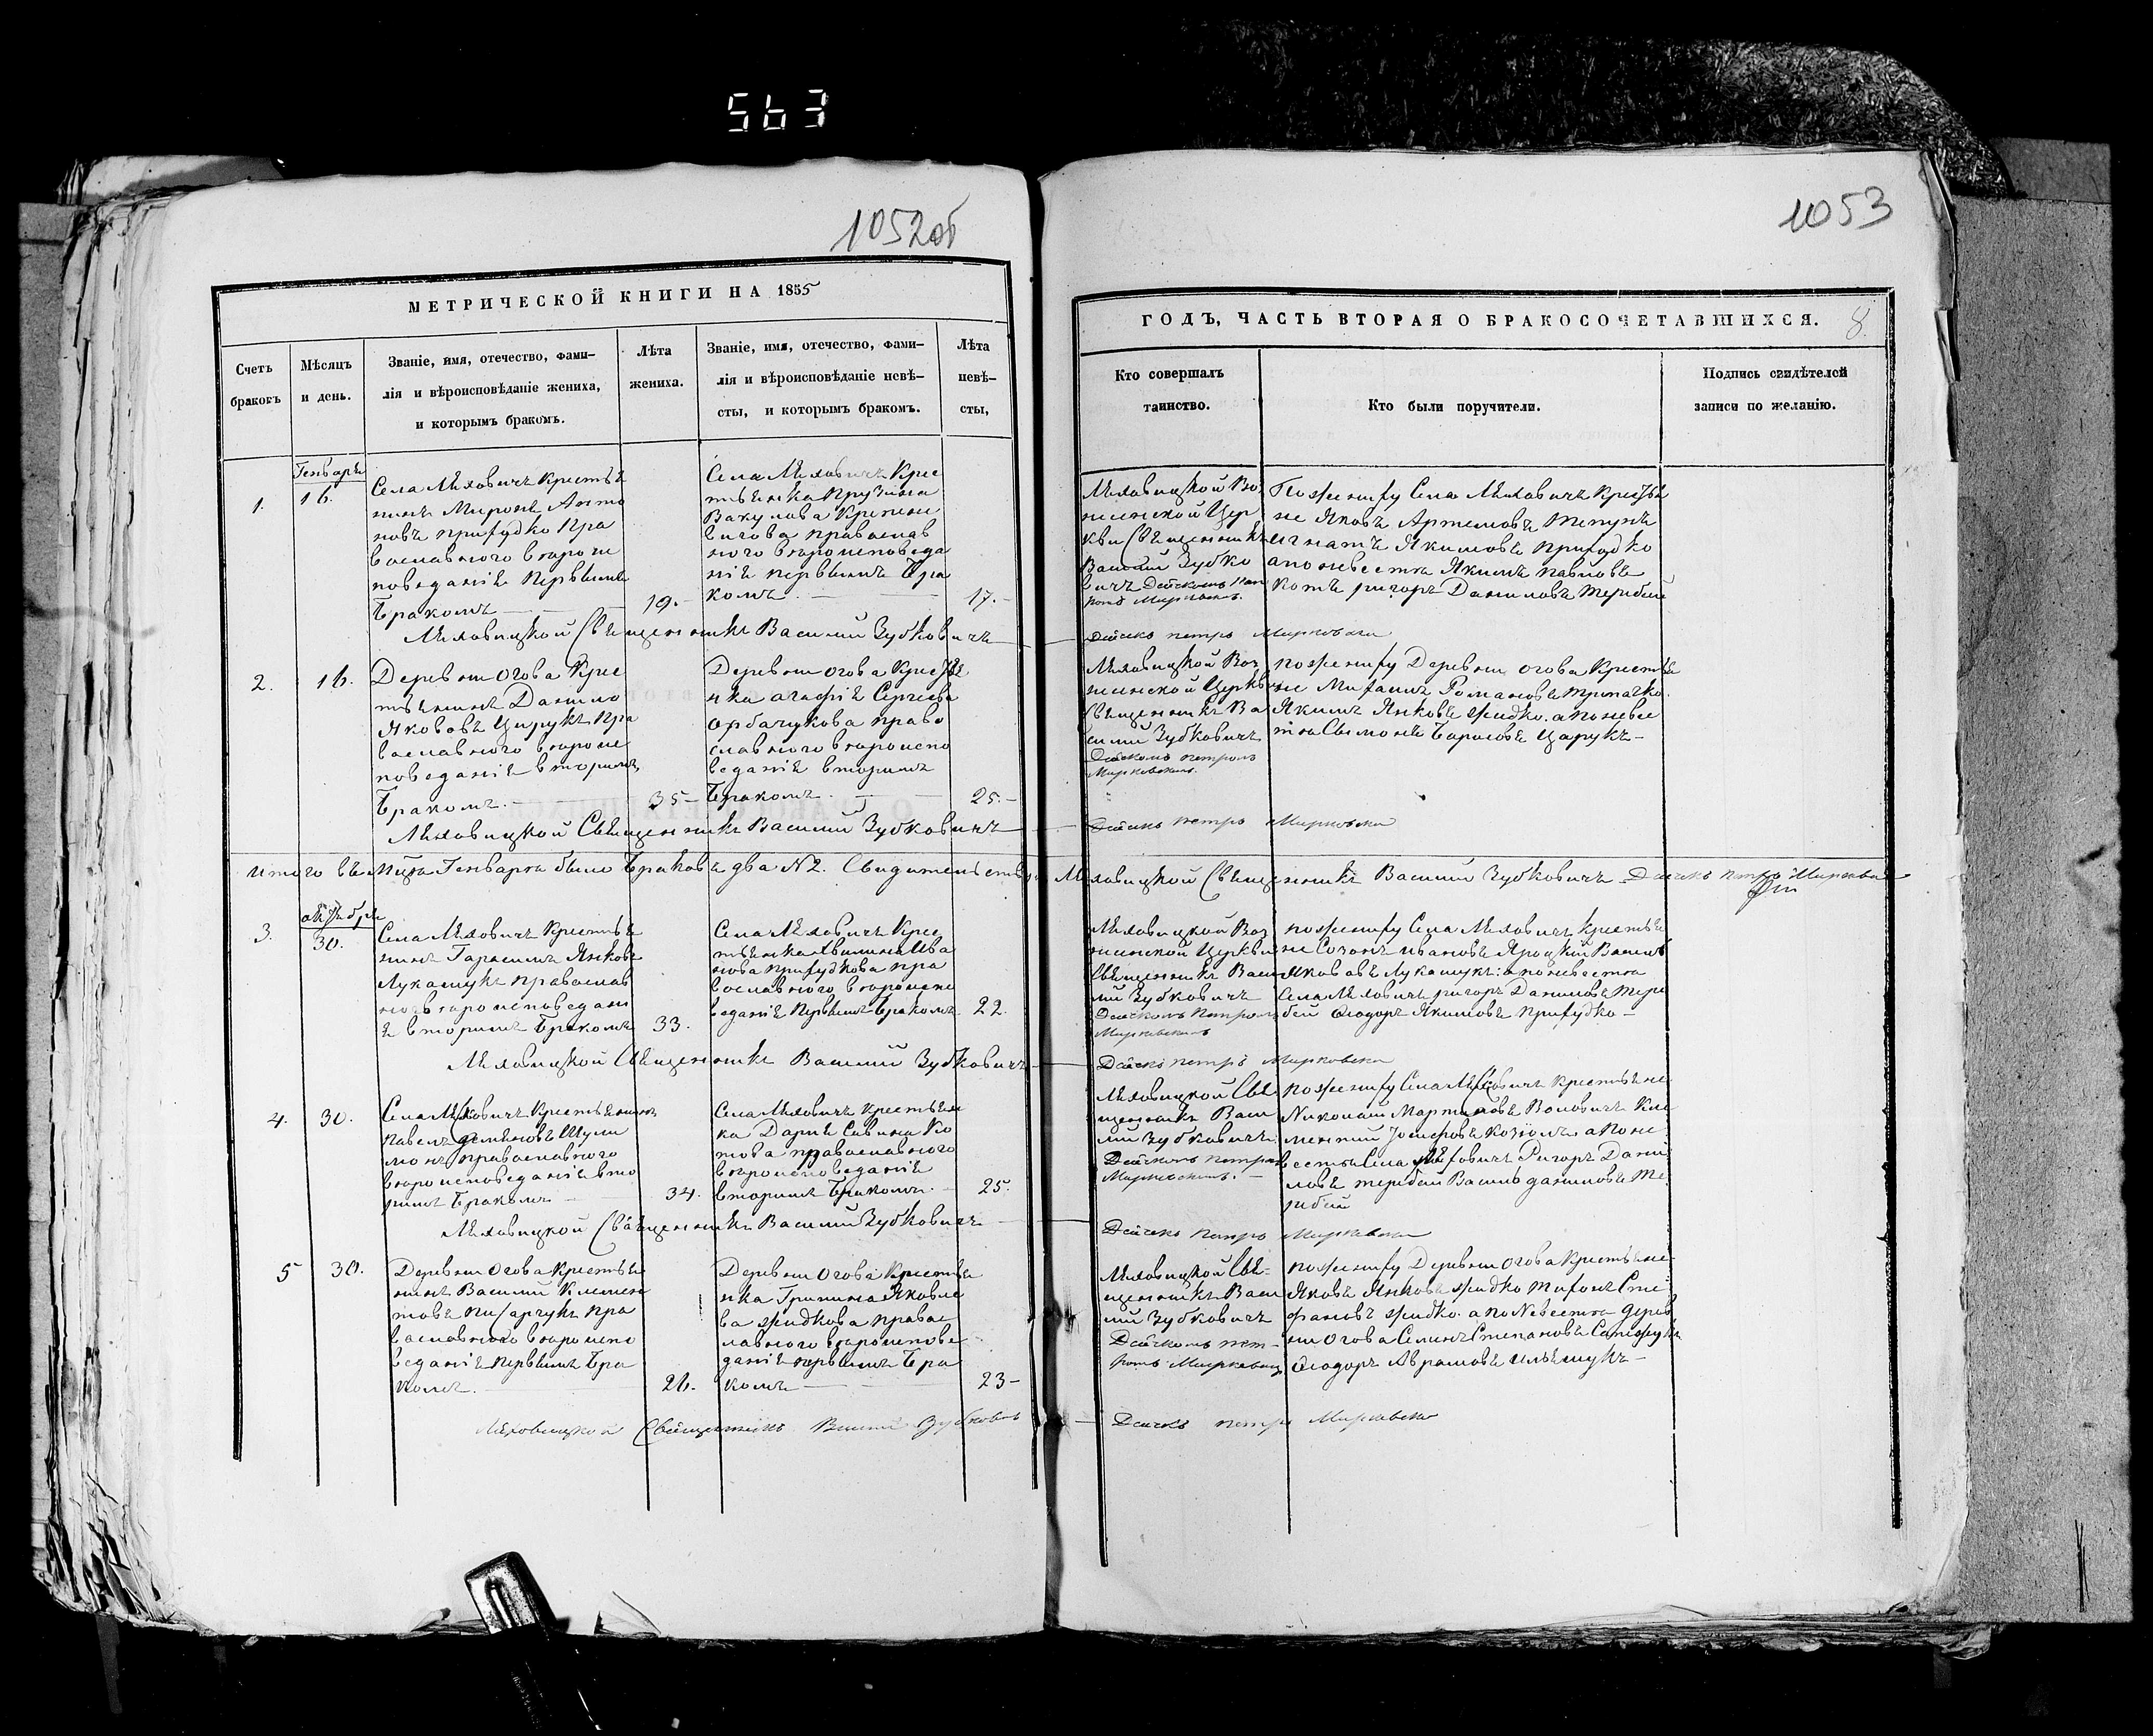 563
1052об
1053
МЕТРИЧЕСКОЙ КНИГИ НА 1855
ГОДЪ, ЧАСТЬ ВТОРАЯ О БРАКОСОЧЕТАВШИХСЯ.
8.
Счетъ
браковъ
Мѣсяцъ
и день.
Званіе, имя, отечество, фами-
лія и вѣроисповѣданіе жениха,
и которымъ бракомъ.
Лѣта
жениха.
Званіе, имя, отечество, фами-
лія и вѣроисповѣданіе невѣ-
сты, и которымъ бракомъ.
Лѣта
невѣ-
сты,
Кто совершалъ
таинство.
Кто были поручители.
Подпись свидѣтелей
записи по желанію.
Генваря
1.
16.
Села Мѣховичъ Крестьѣ
нинъ Миронъ Анто
новъ Приходко Пра
вославного вѣрои
поведаніѣ первымъ
Бракомъ
19.-
Села Мѣховичъ Крес
тьѣнка
Вакулова
православ
ного вѣроисповеда
ніѣ первымъ Бра
комъ
17.-
Мѣховицкой Воз
несенской Цер
кви Свѣщенникъ
Василий Зубко
вичъ Дьякомъ Пет
ромъ
По жениху Села Мѣховичъ Крестьѣ
не Яковъ Артемовъ
Игнатъ Якимовъ Приходко
а по невестѣ Якимъ Павловъ
Котъ ригоръ Даниловъ Терибей
Мѣховицкой Свѣщенникъ Василий Зубковичъ
Дьякъ петръ
2.
16.
Деревни Огова Крес
тьѣнинъ Данило
Яковъ Цирукъ Пра
вославного вѣроис
поведаніѣ вторымъ
Бракомъ.
35-
Деревни Огова Крестьѣ
нка агафіѣ Сергеева
Орбачукова право
славного вѣроиспо
веданіѣ вторымъ
Бракомъ.
25.-
Мѣховицкой Воз
несенской Церкви
Свѣщенникъ Ва
силий Зубковичъ
Дьякомъ петромъ
по жениху Деревни Огова Крестьѣ
не Михаилъ Романовъ
Якимъ Янковъ Жидко. а по невес
тѣ Сымонъ Борисовъ Царукъ-
Мѣховицкой Свѣщенникъ Василий Зубковичъ
Дьякъ петръ
Итого въ м͠цѣ Генварѣ было Браковъ два N2. Свидительствую Мѣховицкой Свѣщенникъ Василий Зубковичъ Дьякъ петръ
октября
3.
30.
Села Мѣховичъ Крестьѣ
нинъ Гарасимъ Янковъ
Лукашукъ православ
ного вѣроисповедани
ѣ вторымъ Бракомъ
33.
Села Мѣховичъ Крес
тьѣнка Ива
нова приходкова пра
вославного вѣроиспо
веданіѣ первымъ Бракомъ
22.
Мѣховицкой Воз
несенской Церкви
Свѣщенникъ Васи
лий Зубковичъ
Дьякомъ петромъ
по жениху Села Мѣховичъ Крестьѣ
не Созонъ Ивановъ Яроцкий Василь
Яковъ Лукашукъ: а по невестѣ
Села Мѣховичъ ригоръ Даниловъ Тери
бей Ѳеодоръ Якимовъ Приходко-
Мѣховицкой Свѣщенникъ Василий Зубковичъ
Дьякъ петръ
4.
30.
Села Мѣховичъ Крестьѣнинъ
Павелъ Семеновъ
православного
вѣроисповеданіѣ вто
рымъ Бракомъ
34.
Села Мѣховичъ Крестьѣн
ка Даріѣ Савина Ко
това православного
вѣроисповеданіѣ
вторымъ Бракомъ.
25.
Мѣховицкой Свѣ
щенникъ Васи
лий Зубковичъ
Дьякомъ петромъ
по жениху Села Мѣховичъ Крестьѣне
Николай Мартиновъ Воловичъ Кли
ментий Іосифовъ а по не
вестѣ Села Мѣховичъ Ригоръ Дани
ловъ терибей Василь даниловъ Те
рибей
Мѣховицкой Свѣщенникъ Василий Зубковичъ
Дьякъ петръ
5
30.
Деревни Огова Крестьѣ
нинъ Василий Климен
товъ Писарчукъ пра
вославного вѣроиспо
веданіѣ первымъ Бра
комъ.
26.
Деревни Огова Крестьѣ
нка Яковле
ва жидкова правос
лавного вѣроисповѣ
даніѣ первымъ Бра
комъ
23-
Мѣховицкой Свѣ-
щенникъ Васи
лий Зубковичъ
Дьякомъ пет-
ромъ
по жениху Деревни Огова Крестьѣне
Яковъ Янковъ Жидко Тихонъ Сте
фановъ жидко. а по Невестѣ дерев
ни Огова Степановъ
Ѳеодоръ Аврамовъ Ильѣшукъ-
Мѣховицкой Свѣщенникъ Василий Зубковичъ
Дьякъ петръ